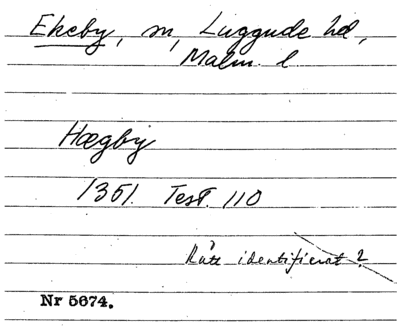 Ekeby, sn, Luggude hd,
Malm. l
Hægby
1351. Test. 110
Rätt identifierat?
Nr 5674.